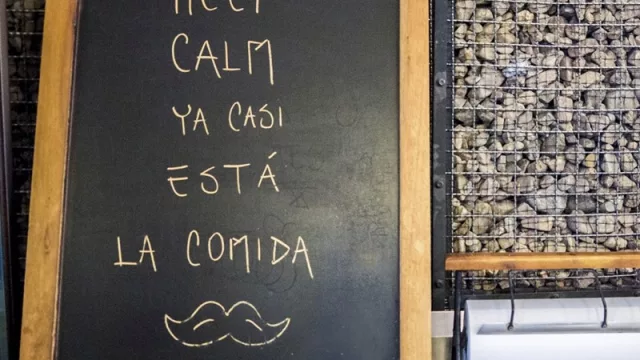 KEEP
CALM
YA CASI
ESTÁ
LA COMIDA